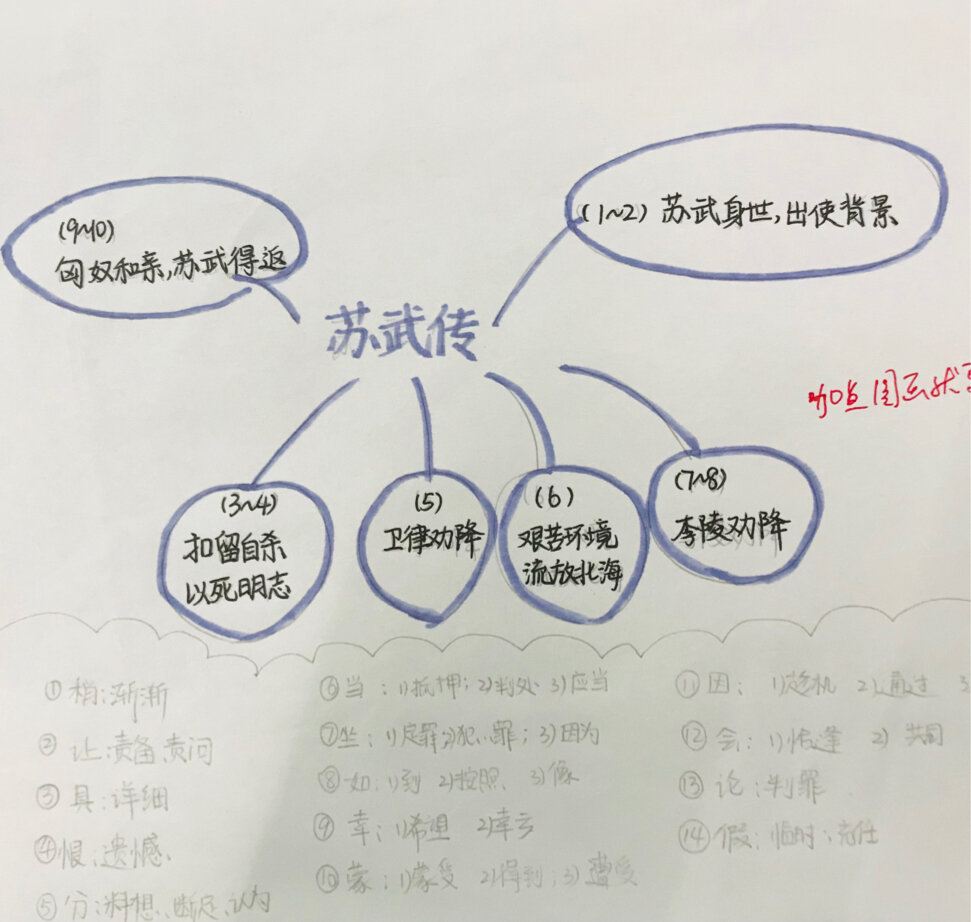 (9~10)
匈奴和亲,苏武得返
(1~2) 苏武身世,出使背景
苏武传
加点图画状
(3~4)
扣留自杀
以死明志
(5)
卫律劝降
(6)
艰苦环境
流放北海
(7~8)
李陵劝降
①稍:渐渐
②让:责备,责问
③具:详细
④恨:遗憾
⑤分:料想、断定、认为
⑥当:1)抵押;2)判处 3)应当
⑦坐:1)定罪;2)犯罪;3)因为
⑧如:1)到 2)按照、3)像
⑨幸:1)希望 2)幸亏
⑩蒙:1)蒙受 2)得到;3)遭受
⑪因:1)趁机 2)通过 3
⑫会:1)恰逢 2)共同
⑬论:判罪
⑭假:临时充任